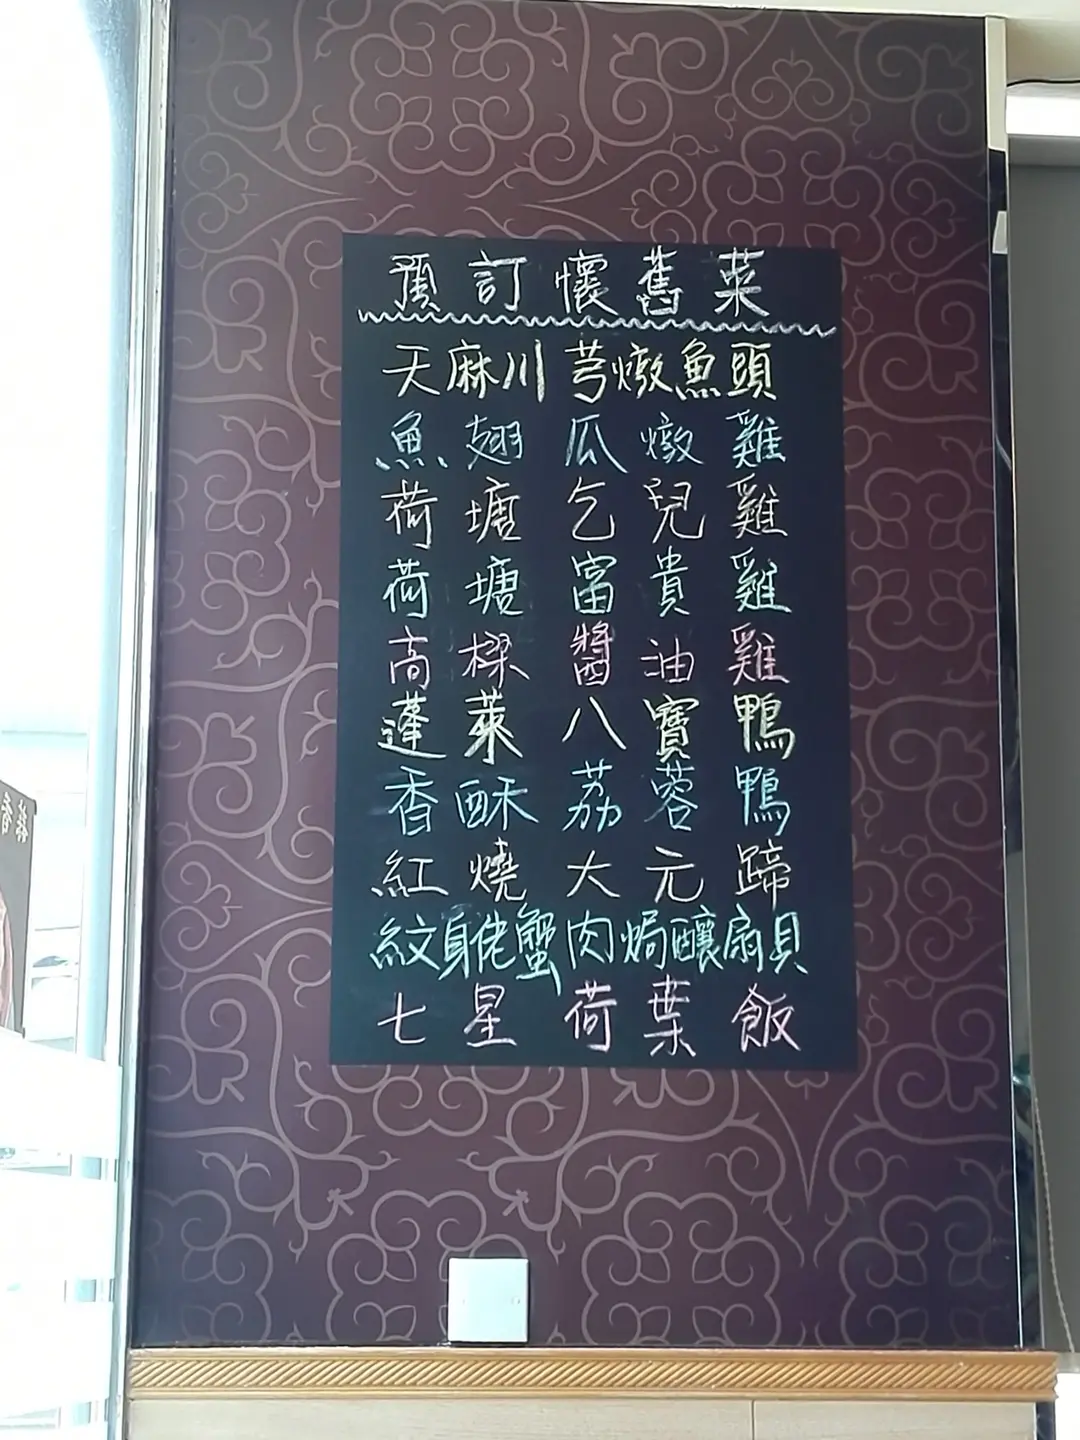 預訂懷舊菜
天麻川芎燉魚頭
魚翅瓜燉雞
荷塘乞兒雞
荷塘富貴雞
高樑醬油雞
蓬萊八寶鴨
香酥荔蓉鴨
紅燒大元蹄
紋身佬蟹肉焗釀扇貝
七星荷葉飯